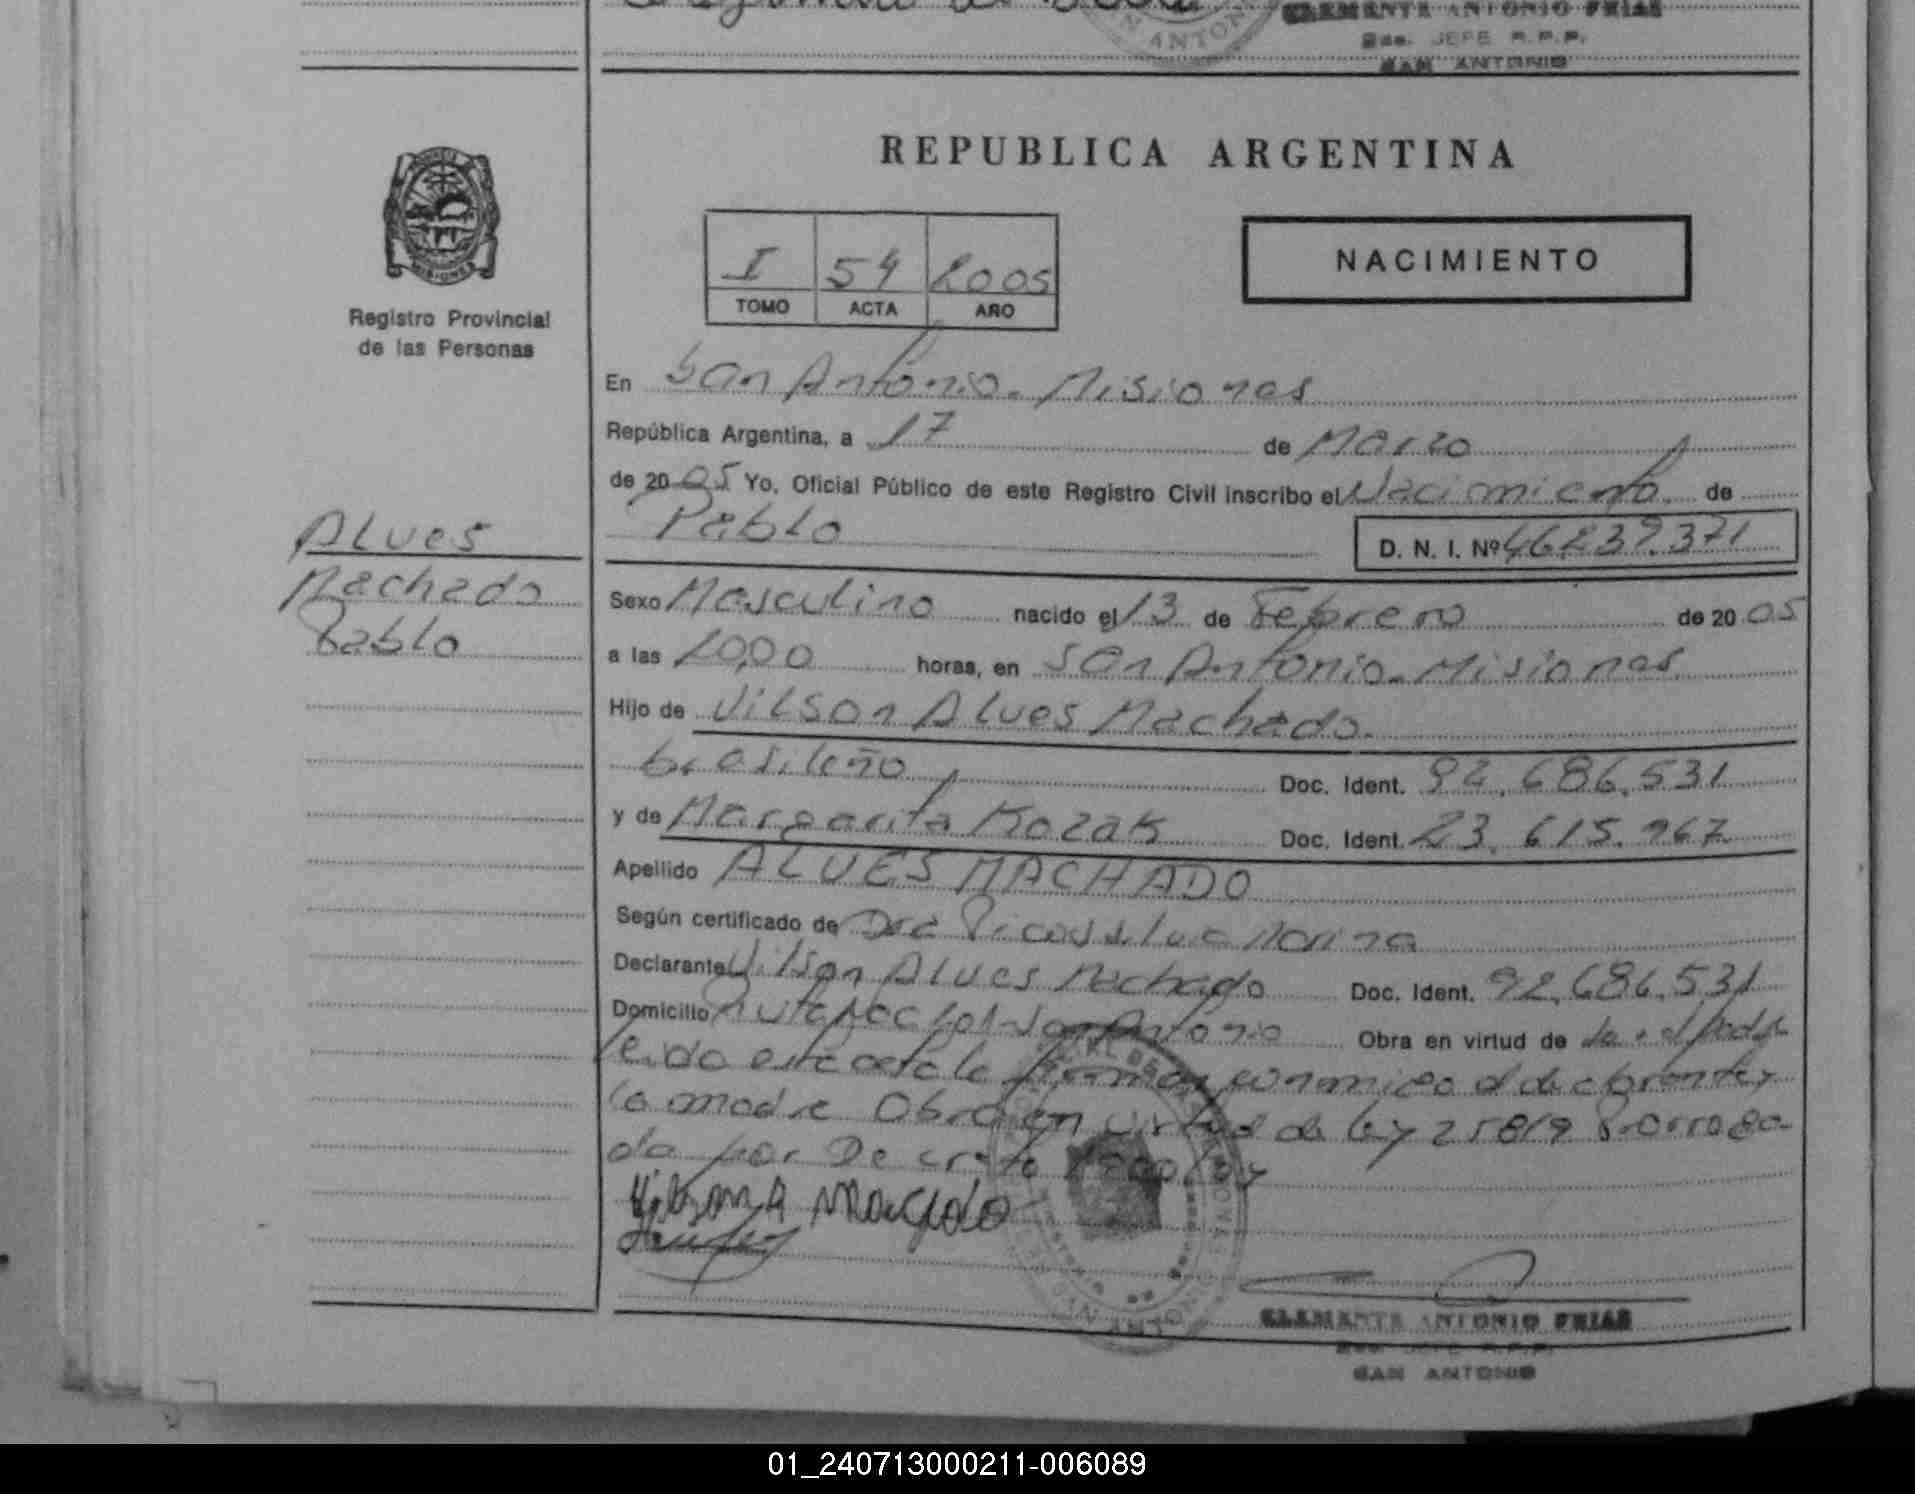 CLEMENTE ANTONIO FRIAS
JEFE R.P.P.
SAN ANTONIO
REPUBLICA ARGENTINA
MISIONES
Registro Provincial
de las Personas
I 54 2005
TOMO ACTA AÑO
NACIMIENTO
En San Antonio - Misiones
República Argentina, a 17 de Marzo
de 2005 Yo, Oficial Público de este Registro Civil inscribo el Nacimiento de
Pablo D. N. I. Nº 46.239.371
Alves
Machado
Pablo
Sexo Masculino nacido el 13 de Febrero de 2005
a las 20,00 horas, en San Antonio - Misiones
Hijo de Vilson Alves Machado
brasileño Doc. Ident. 92.686.531
y de Margarita Kozak Doc. Ident. 23.615.967
Apellido ALVES MACHADO
Según certificado de Dra Picos Silvia Marina
Declarante Vilson Alves Machado Doc. Ident. 92.686.531
Domicilio San Antonio Obra en virtud de
leida esta acta la firman conmigo el declarante y
la madre Obra en virtud de ley 25819 Prorroga-
da por Decreto
CLEMENTE ANTONIO FRIAS
JEFE R.P.P.
SAN ANTONIO
01_240713000211-006089